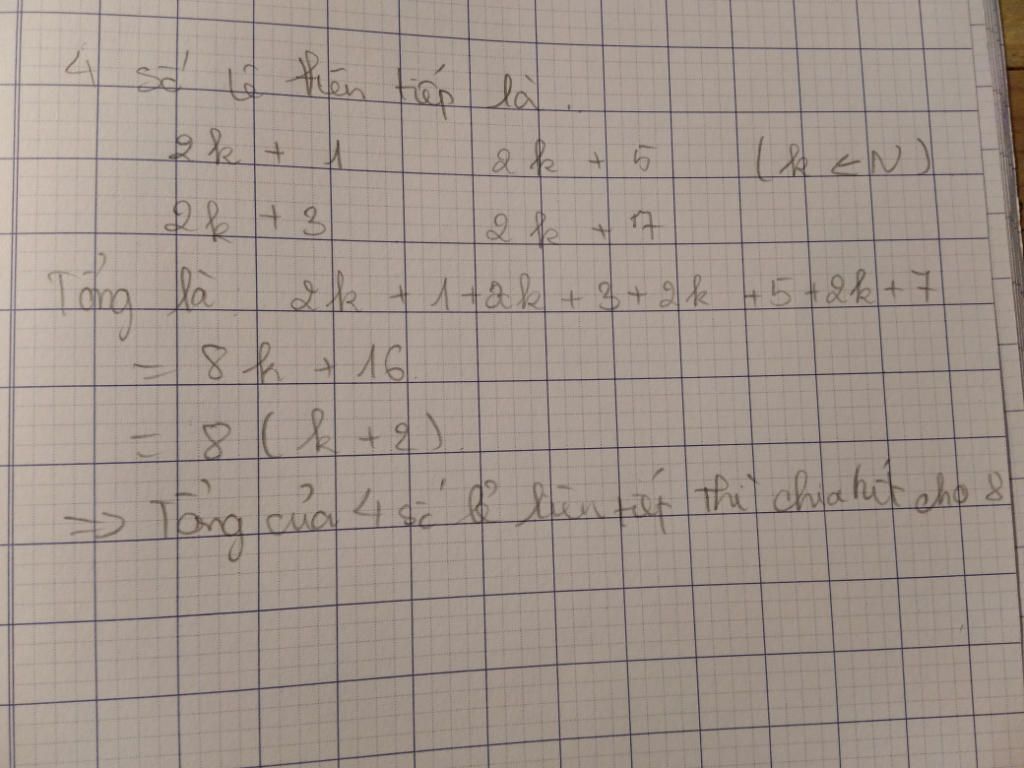 4 số lẻ liên tiếp là.
2k + 1 2k + 5 (k ∈ N)
2k + 3 2k + 7
Tổng là 2k + 1 + 2k + 3 + 2k + 5 + 2k + 7
= 8k + 16
= 8 (k + 2)
=> Tổng của 4 số lẻ liên tiếp thì chia hết cho 8